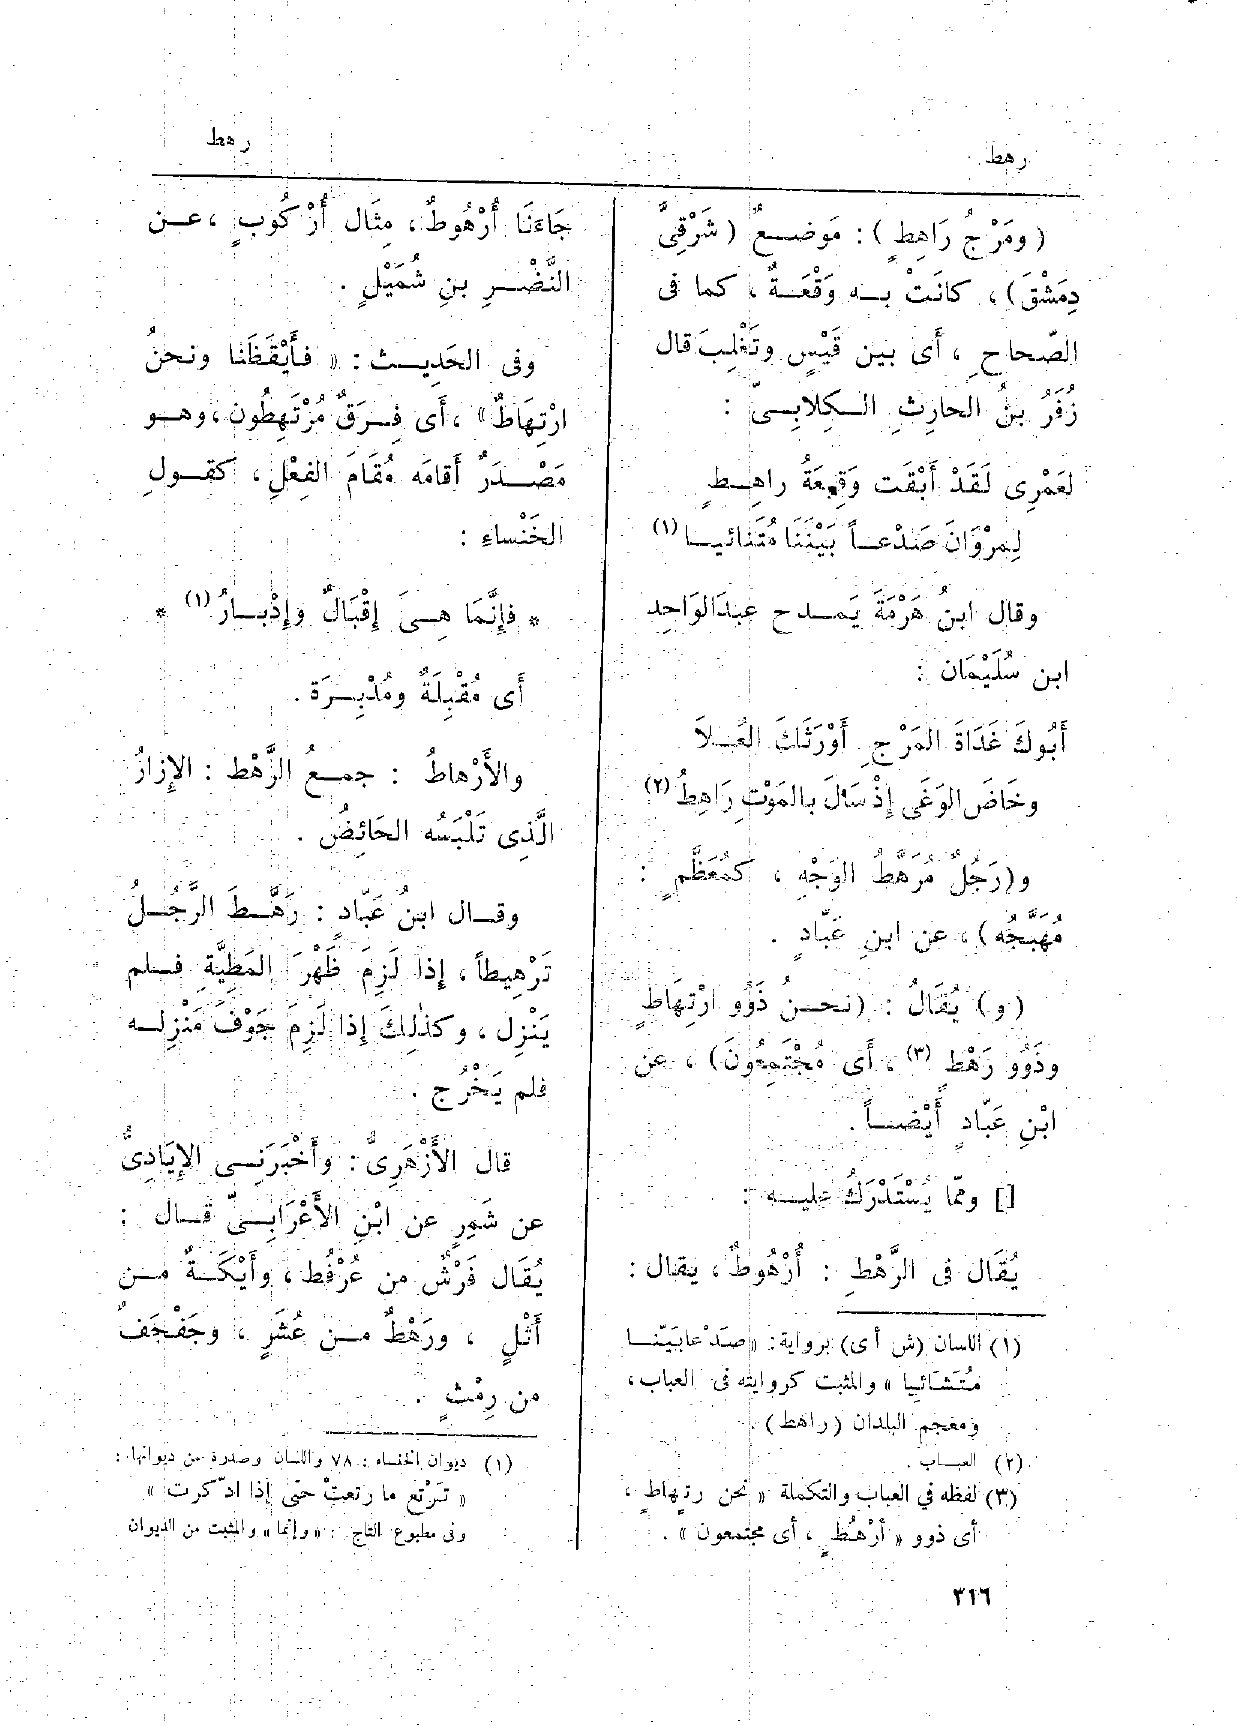 رهط
(ومَرْجُ رَاهِطٍ): مَوضعٌ (شَرْقِىَّ
دِمَشْقَ)، كانَتْ به وَقْعَةٌ، كما فى
الصّحاحِ، أى بين قَيْسٍ وتَغْلِبَ قال
زُفَرُ بنُ الحارِثِ الكِلابِىّ :
لعَمْرِى لَقَدْ أَبْقَت وَقِيعَةُ راهِطٍ
لِمرْوَانَ صَدْعاً بَيْنَنَا مُتَنائيا (١)
وقال ابنُ هَرْمَةَ يَمدح عبدَالوَاحِد
ابن سُلَيْمَان :
أَبُوكَ غَدَاةَ المَرْجِ أَوْرَثَكَ العُلاَ
وخَاضَ الوَغَى إِذْ سَالَ بالمَوْتِ رَاهِطُ (٢)
و(رَجُلٌ مُرَهَّطُ الوَجْهِ، كمُعَظَّمٍ :
مُهَبَّجُه)، عن ابنِ عَبّادٍ .
(و) يُقَالُ : (نحنُ ذَوُو ارْتِهَاطٍ
وذَوُو رَهْطٍ (٣)، أَى مُجْتَمِعُونَ)، عن
ابْنِ عَبّادٍ أَيْضاً .
[] وممّا يُسْتَدْرَكُ عليه :
يُقَال فى الرَّهْطِ : أُرْهُوطٌ، يقال :
(١) اللسان (ش أ ى) برواية: «صَدْعا بَيْنَنا
مُتَشَائِيا» والمثبت كروايته فى العباب،
ومعجم البلدان (راهط) .
(٢) العباب .
(٣) لفظه في العباب والتكملة «نحن رتهاط،
أى ذوو «أرْهُطٍ، أى مجتمعون» .
٣١٦
رهط
جَاءَنَا أُرْهُوطٌ، مِثَال أُرْكُوبٍ، عن
النَّضْرِ بنِ شُمَيْلٍ .
وفى الحَدِيث : «فأَيْقَظَنا ونحنُ
ارْتِهَاطٌ»، أَى فِرَقٌ مُرْتَهِطُون، وهو
مَصْدَرٌ أَقامَه مُقَامَ الفِعْلِ، كقولِ
الخَنْساءِ :
* فإِنَّمَا هِىَ إِقْبَالٌ وإِدْبارُ (١) *
أَى مُقْبِلَةٌ ومُدْبِرَة .
والأَرْهاطُ : جمعُ الرَّهْط : الإِزارُ
الَّذِى تَلْبَسُه الحَائِضُ .
وقال ابنُ عَبّادٍ : رَهَّطَ الرَّجُلُ
تَرْهِيطاً، إِذا لَزِمَ ظَهْرَ المَطِيَّةِ فلم
يَنْزِل، وكذٰلِكَ إِذا لَزِمَ جَوْفَ مَنْزِله
فلم يَخْرُج .
قال الأَزْهَرِىُّ : وأَخْبَرَنِى الإِيَادِىُّ
عن شَمِرٍ عن ابْنِ الأَعْرَابِىّ قال :
يُقَال فَرْشٌ من عُرْفُط، وأَيْكَةٌ من
أَثْلٍ، ورَهْطٌ من عُشَرٍ، وجَفْجَفٌ
من رِمْثٍ .
(١) ديوان الخنساء : ٧٨ واللسان وصدره من ديوانها :
«تَرْتَع ما رتعتْ حتى إذا ادّكرت»
وفى مطبوع التاج : «وإنما» والمثبت من الديوان